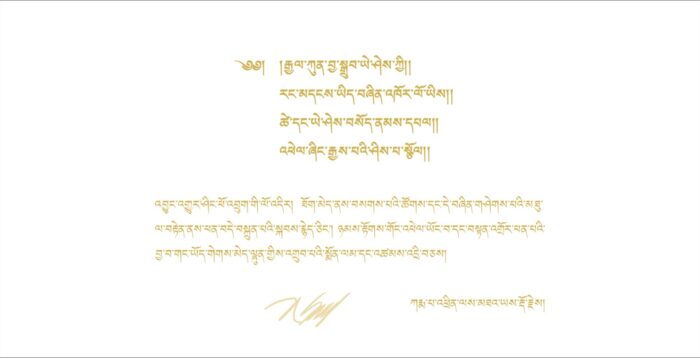 ༄༅། །རྒྱལ་ཀུན་བྱ་སྒྲུབ་ཡེ་ཤེས་ཀྱི།།
རང་མདངས་ཡིད་བཞིན་འཁོར་ལོ་ཡིས།།
ཚེ་དང་ཡེ་ཤེས་བསོད་ནམས་དཔལ།།
འཕེལ་ཞིང་རྒྱས་པའི་ཤིས་པ་སྩོལ།།
འབྱུང་འགྱུར་ཤིང་ཕོ་འབྲུག་གི་ལོ་འདིར། ཐོག་མེད་ནས་བསགས་པའི་ཚོགས་དང་དེ་བཞིན་གཤེགས་པའི་མཐུ་
ལ་བརྟེན་ནས་ཕན་བདེ་བསྐྲུན་པའི་སྐབས་རྙེད་ཅིང་། ཉམས་རྟོགས་གོང་འཕེལ་ཡོང་བ་དང་བསྟན་འགྲོར་ཕན་པའི་
བྱ་བ་གང་ཡོད་གེགས་མེད་ལྷུན་གྱིས་འགྲུབ་པའི་སྨོན་ལམ་དང་འཚམས་འདྲི་བཅས།
ཀརྨ་པ་འཕྲིན་ལས་མཐའ་ཡས་རྡོ་རྗེས།